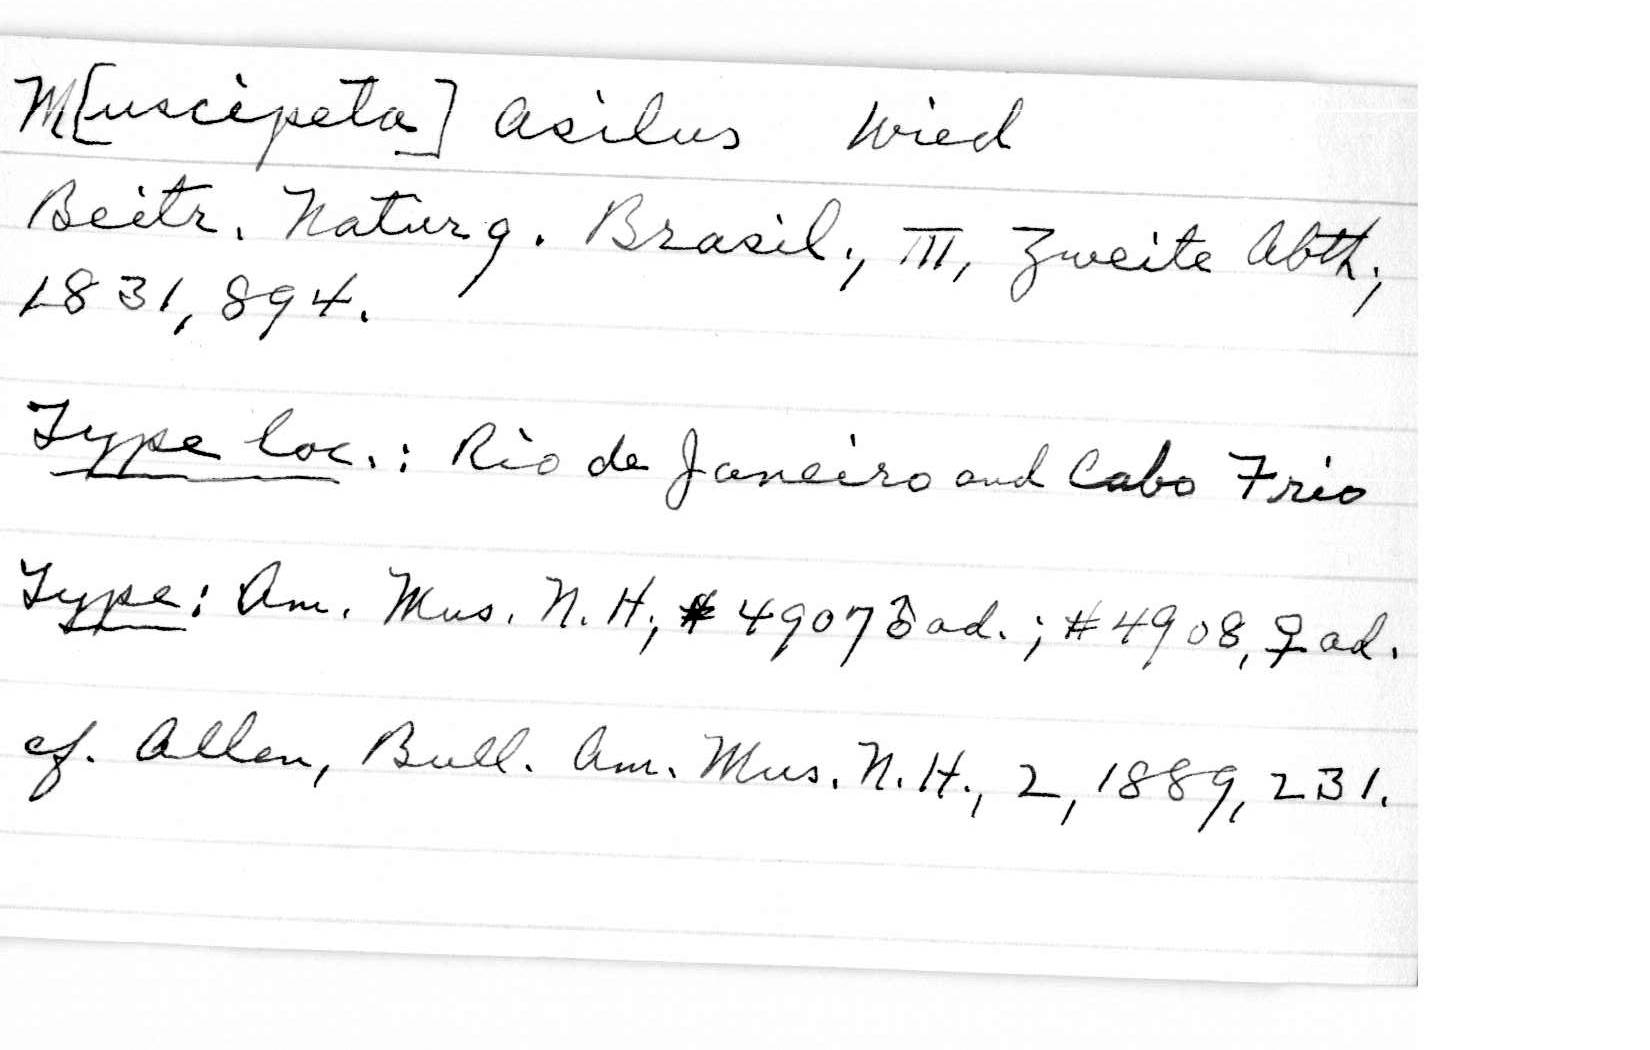 M[uscipeta] asilus Wied
Beitr. Naturg. Brasil., III, Zweite Abth.,
1831, 894.
Type loc.: Rio de Janeiro and Cabo Frio
Type: Am. Mus. N.H., #4907 ♂ ad.; #4908, ♀ ad.
cf. Allen, Bull. Am. Mus. N.H., 2, 1889, 231.